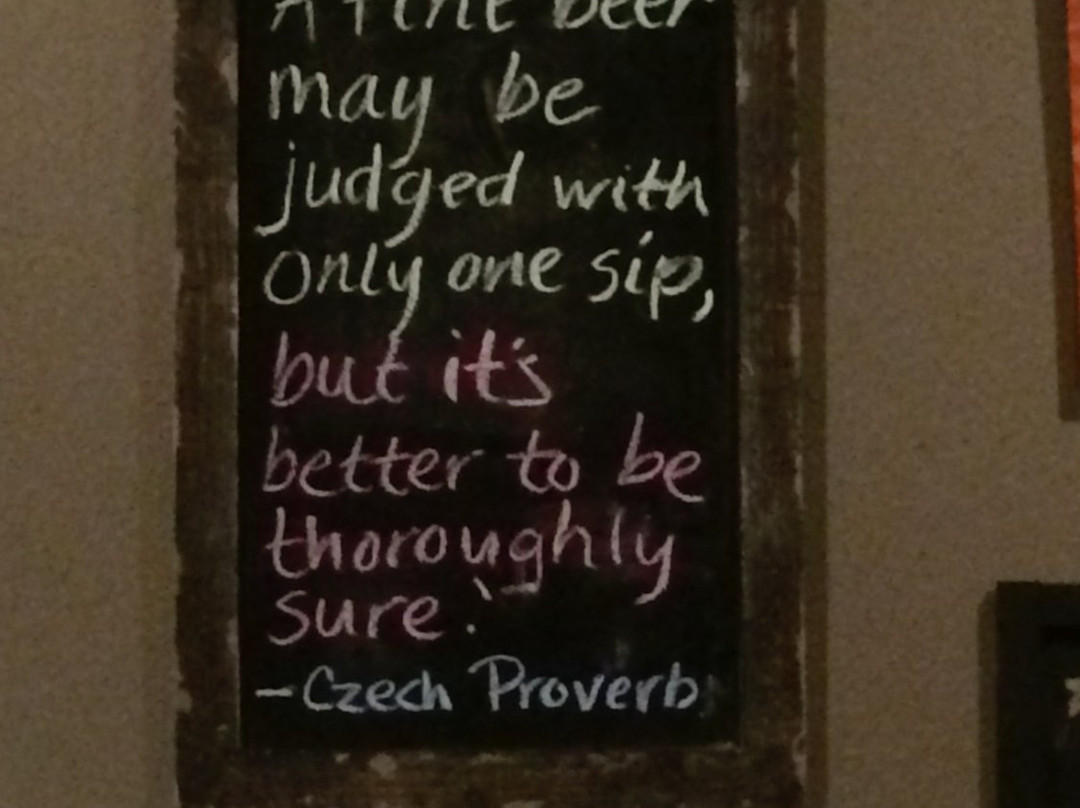 A fine beer
may be
judged with
only one sip,
but it's
better to be
thoroughly
sure."
-Czech Proverb